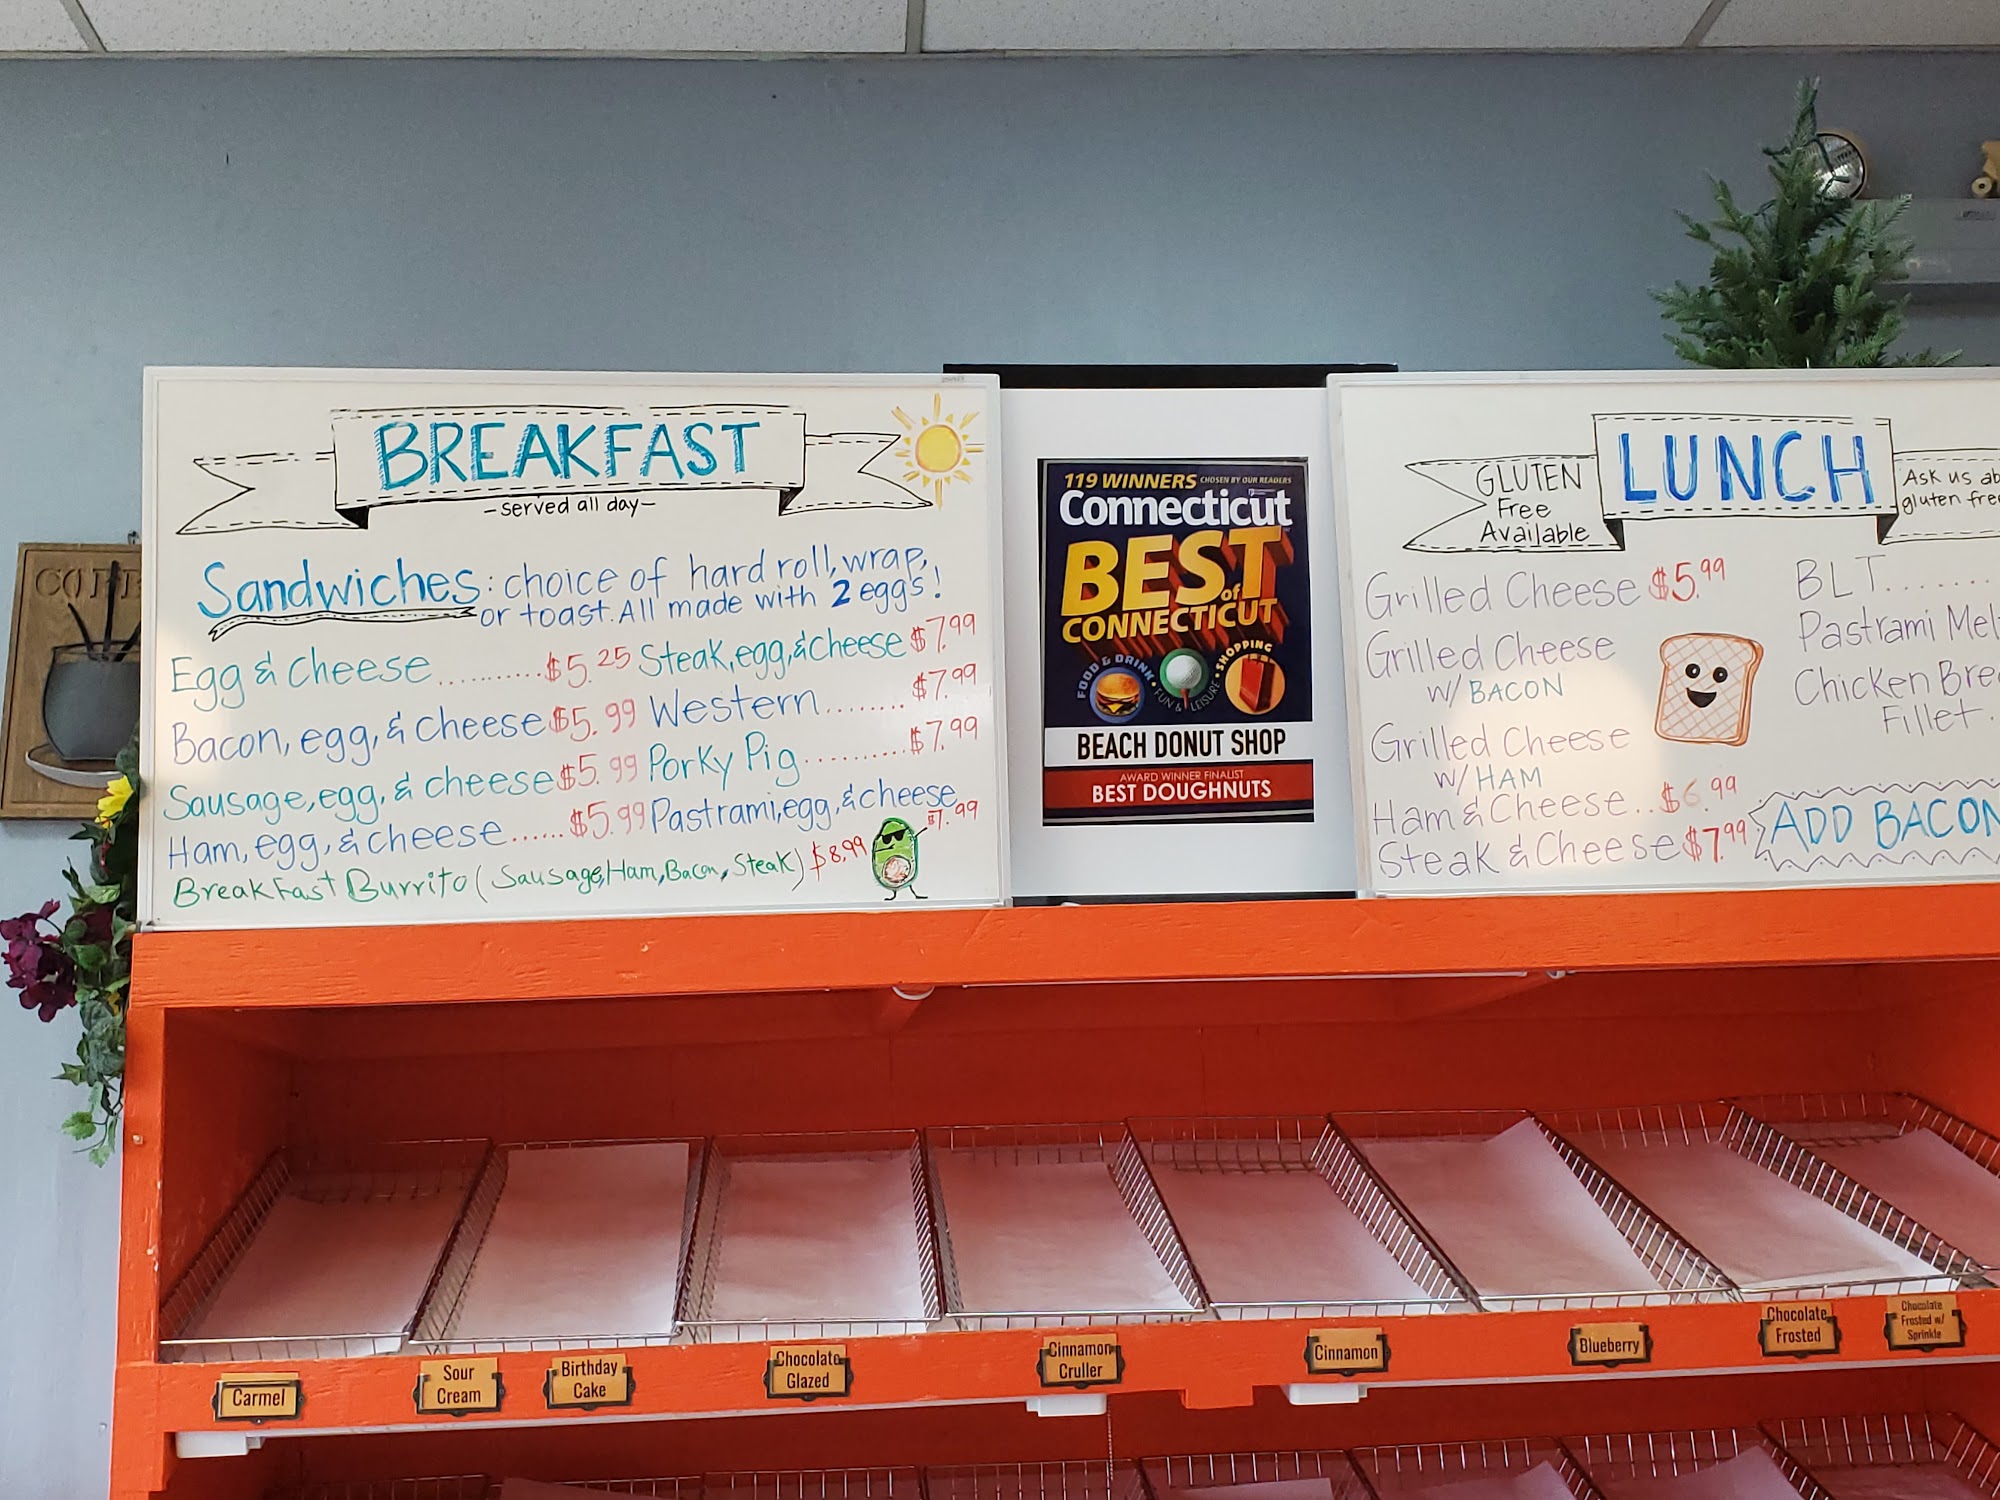 COFF
BREAKFAST
-served all day-
Sandwiches: choice of hard roll, wrap,
or toast. All made with 2 eggs!
Egg & Cheese..........$5.25
Bacon, egg, & cheese $5.99
Sausage, egg, & cheese $5.99
Ham, egg, & cheese......$5.99
Steak, egg, & cheese $7.99
Western........$7.99
Porky Pig..........$7.99
Pastrami, egg, & cheese $7.99
Breakfast Burrito (Sausage, Ham, Bacon, Steak) $8.99
119 WINNERS CHOSEN BY OUR READERS
Connecticut
BEST
of
CONNECTICUT
FOOD & DRINK • FUN & LEISURE • SHOPPING
BEACH DONUT SHOP
AWARD WINNER FINALIST
BEST DOUGHNUTS
GLUTEN
Free
Available
LUNCH
Ask us ab
gluten free
Grilled Cheese $5.99
Grilled Cheese
w/ BACON
Grilled Cheese
w/ HAM
Ham & Cheese..$6.99
Steak & Cheese $7.99
BLT.......
Pastrami Mel
Chicken Bre
Fillet.
ADD BACON
Carmel
Sour
Cream
Birthday
Cake
Chocolate
Glazed
Cinnamon
Cruller
Cinnamon
Blueberry
Chocolate
Frosted
Chocolate
Frosted w/
Sprinkle